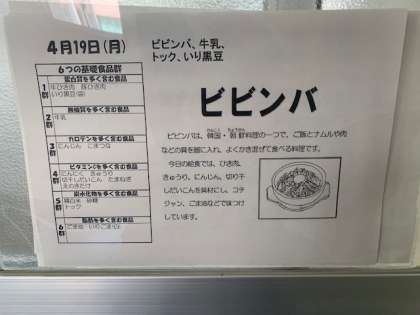 4月19日(月)
ビビンバ、牛乳、
トック、いり黒豆
6つの基礎食品群
蛋白質を多く含む食品
1群
牛ひき肉 豚ひき肉
いり黒豆(袋)
無機質を多く含む食品
2群
牛乳
カロテンを多く含む食品
3群
にんじん こまつな
ビタミンCを多く含む食品
4群
にんにく きゅうり
切干しだいこん たまねぎ
えのきたけ
炭水化物を多く含む食品
5群
精白米 砂糖
トック
脂肪を多く含む食品
6群
ごま油 いりごま(白)
ビビンバ
ビビンバは、韓国・朝鮮料理の一つで、ご飯とナムルや肉
などの具を器に入れ、よくかき混ぜて食べる料理です。
今日の給食では、ひき肉、
きゅうり、にんじん、切り干
しだいこんを具材にし、コチ
ジャン、ごま油などで味つけ
しています。